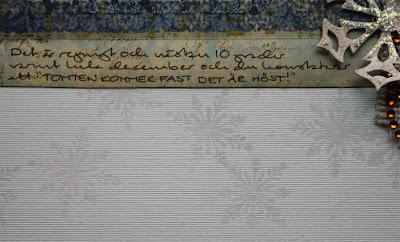 Det är regnigt och nästan 10 grader
samt mitt i december och du konstaterar
att: "TOMTEN KOMMER FAST DET ÄR HÖST!"